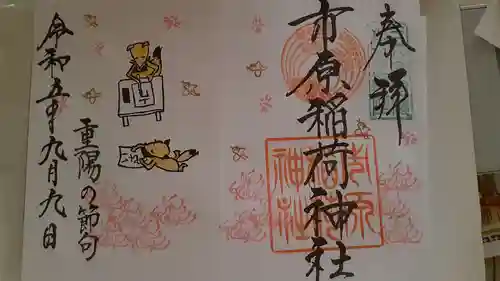 奉拝
市原稲荷神社
市原稲荷神社
重陽の節句
令和五年九月九日